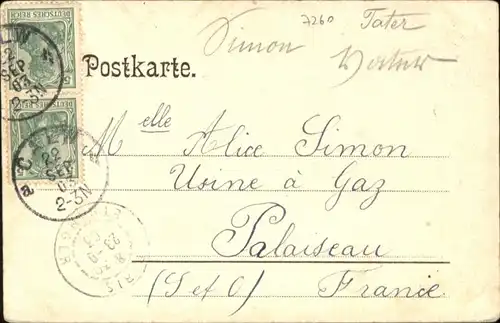 7260 Tater
Simon
DEUTSCHES REICH
5
DEUTSCHES REICH
5
Postkarte.
SEP
03
2-3N
Melle Alice Simon
Usine à Gaz
Palaiseau
(S et O) France
23 -9
03